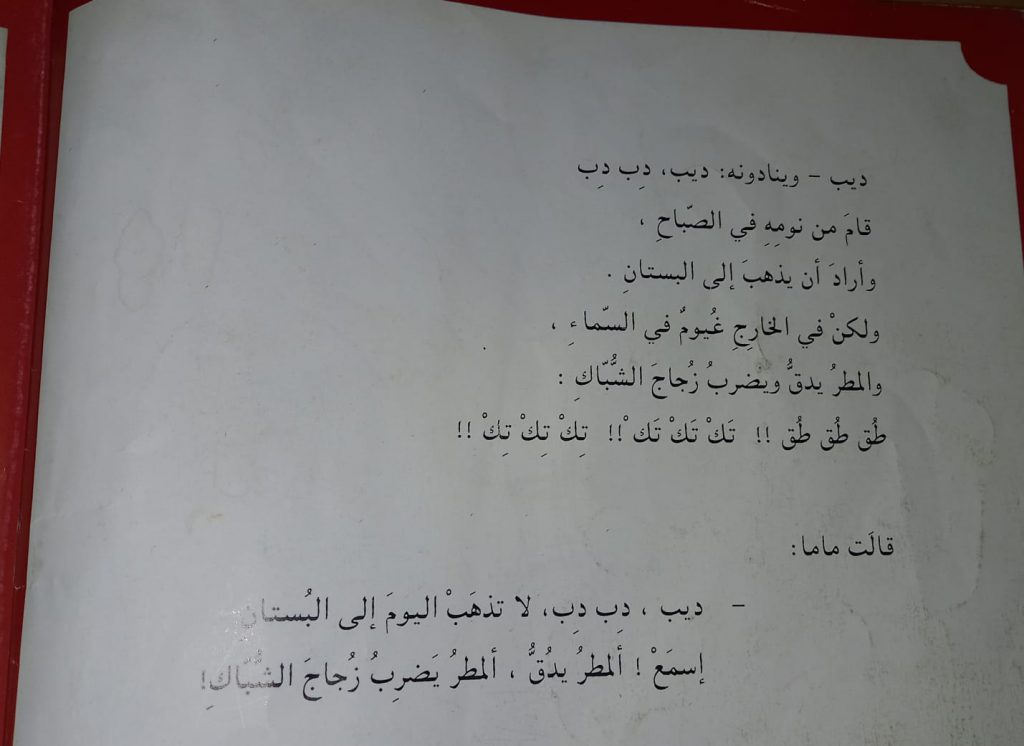 ديب – وينادونه: ديب، دِب دِب
قامَ من نومِهِ في الصّباحِ ،
وأرادَ أن يذهبَ إلى البستانِ .
ولكنْ في الخارِجِ غُيومٌ في السّماءِ ،
والمطرُ يدقُّ ويضربُ زُجاجَ الشُّبّاكِ :
طُق طُق طُق !! تَكْ تَكْ تَكْ !! تِكْ تِكْ تِكْ !!
قالَت ماما:
– ديب ، دِب دِب، لا تذهَبْ اليومَ إلى البُستانِ
إسمَعْ ! ألمطرُ يدُقُّ ، ألمطرُ يَضرِبُ زُجاجَ الشُّبّاكِ!